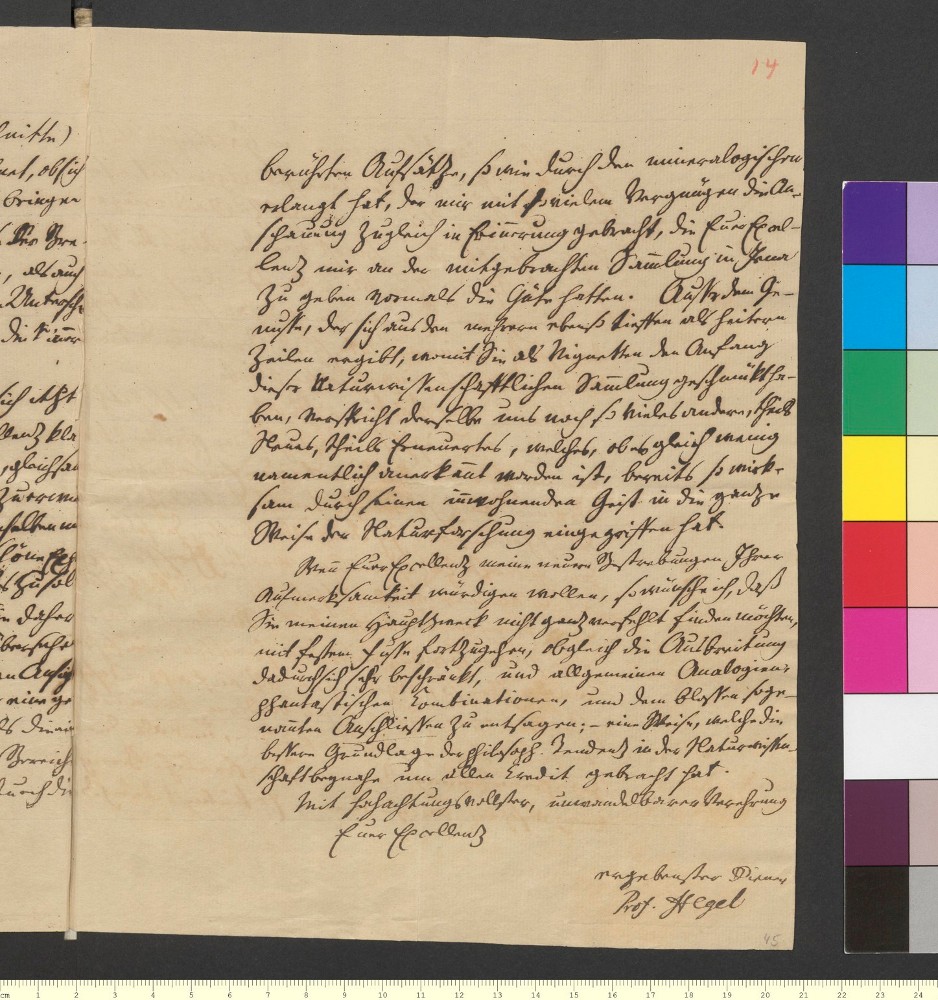 14
berührten Aufsätze, so wie durch den mineralogischen
erlangt hat, der mir mit so vielem Vergnügen die An-
schauung zugleich in Erinnerung gebracht, die Euer Excel-
lenz mir an der mitgebrachten Sammlung in Jena
zu geben vormals die Güte hatten. Ausser dem Ge-
nusse, der sich aus den mehrern ebenso tieffen als heitern
Zeilen ergibt, womit Sie als Vignetten den Anfang
dieser Naturwissenschafftlichen Sammlung geschmükt ha-
ben, verspricht derselbe uns noch so vieles andere, theils
Neues, theils Erneuertes, welches, ob es gleich wenig
namentlich anerkannt worden ist, bereits so wirk-
sam durch seinen innwohnenden Geist in die ganze
Weise der Naturforschung eingegriffen hat.
Wenn Euer Excellenz meine neuern Bestrebungen Ihrer
Aufmerksamkeit würdigen wollen, so wünsche ich, daß
Sie meinen Hauptzweck nicht ganz verfehlt finden möchten,
mit festem Fusse fortzugehen, obgleich die Ausbreitung
dadurch sich sehr beschränkt, und allgemeinen Analogien,
phantastischen Combinationen, und dem blossen soge-
nannten Anschliessen zu entsagen; – eine Weise, welche die
bessere Grundlage der philosoph. Tendenz in der Naturwissen-
schaft beynahe um allen Credit gebracht hat.
Mit hochachtungsvollster, unwandelbarer Verehrung
Euer Excellenz
ergebenster Diener
Prof. Hegel
45